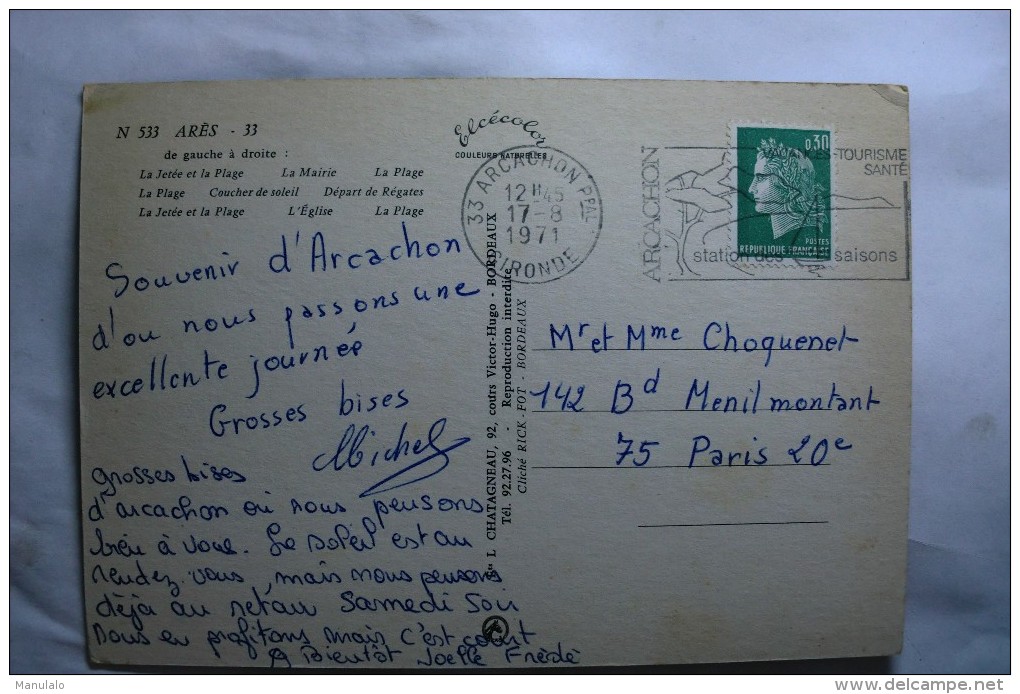 N 533 ARÈS - 33
de gauche à droite :
La Jetée et la Plage La Mairie La Plage
La Plage Coucher de soleil Départ de Régates
La Jetée et la Plage L'Église La Plage
Elcécolor
COULEURS NATURELLES
33 ARCACHON PPAL
12H45
17-8
1971
GIRONDE
ARCACHON
-TOURISME
SANTÉ
station des saisons
0,30
POSTES
REPUBLIQUE FRANÇAISE
Souvenir d'Arcachon
d'ou nous passons une
excellente journée
Grosses bises
Michel
grosses bises
d'arcachon où nous pensons
bien à vous. Le soleil est au
rendez vous, mais nous pensons
déja au retour Samedi Soir
nous en profitons mais c'est court
A Bientôt Joelle Frédé
L. CHATAGNEAU, 92, cours Victor-Hugo - BORDEAUX
Tél. 92.27.96 - Reproduction interdite
Cliché RICK-FOT - BORDEAUX
Mr et Mme Choquenet
142 Bd Menilmontant
75 Paris 20e
Manulalo
delcampe.net